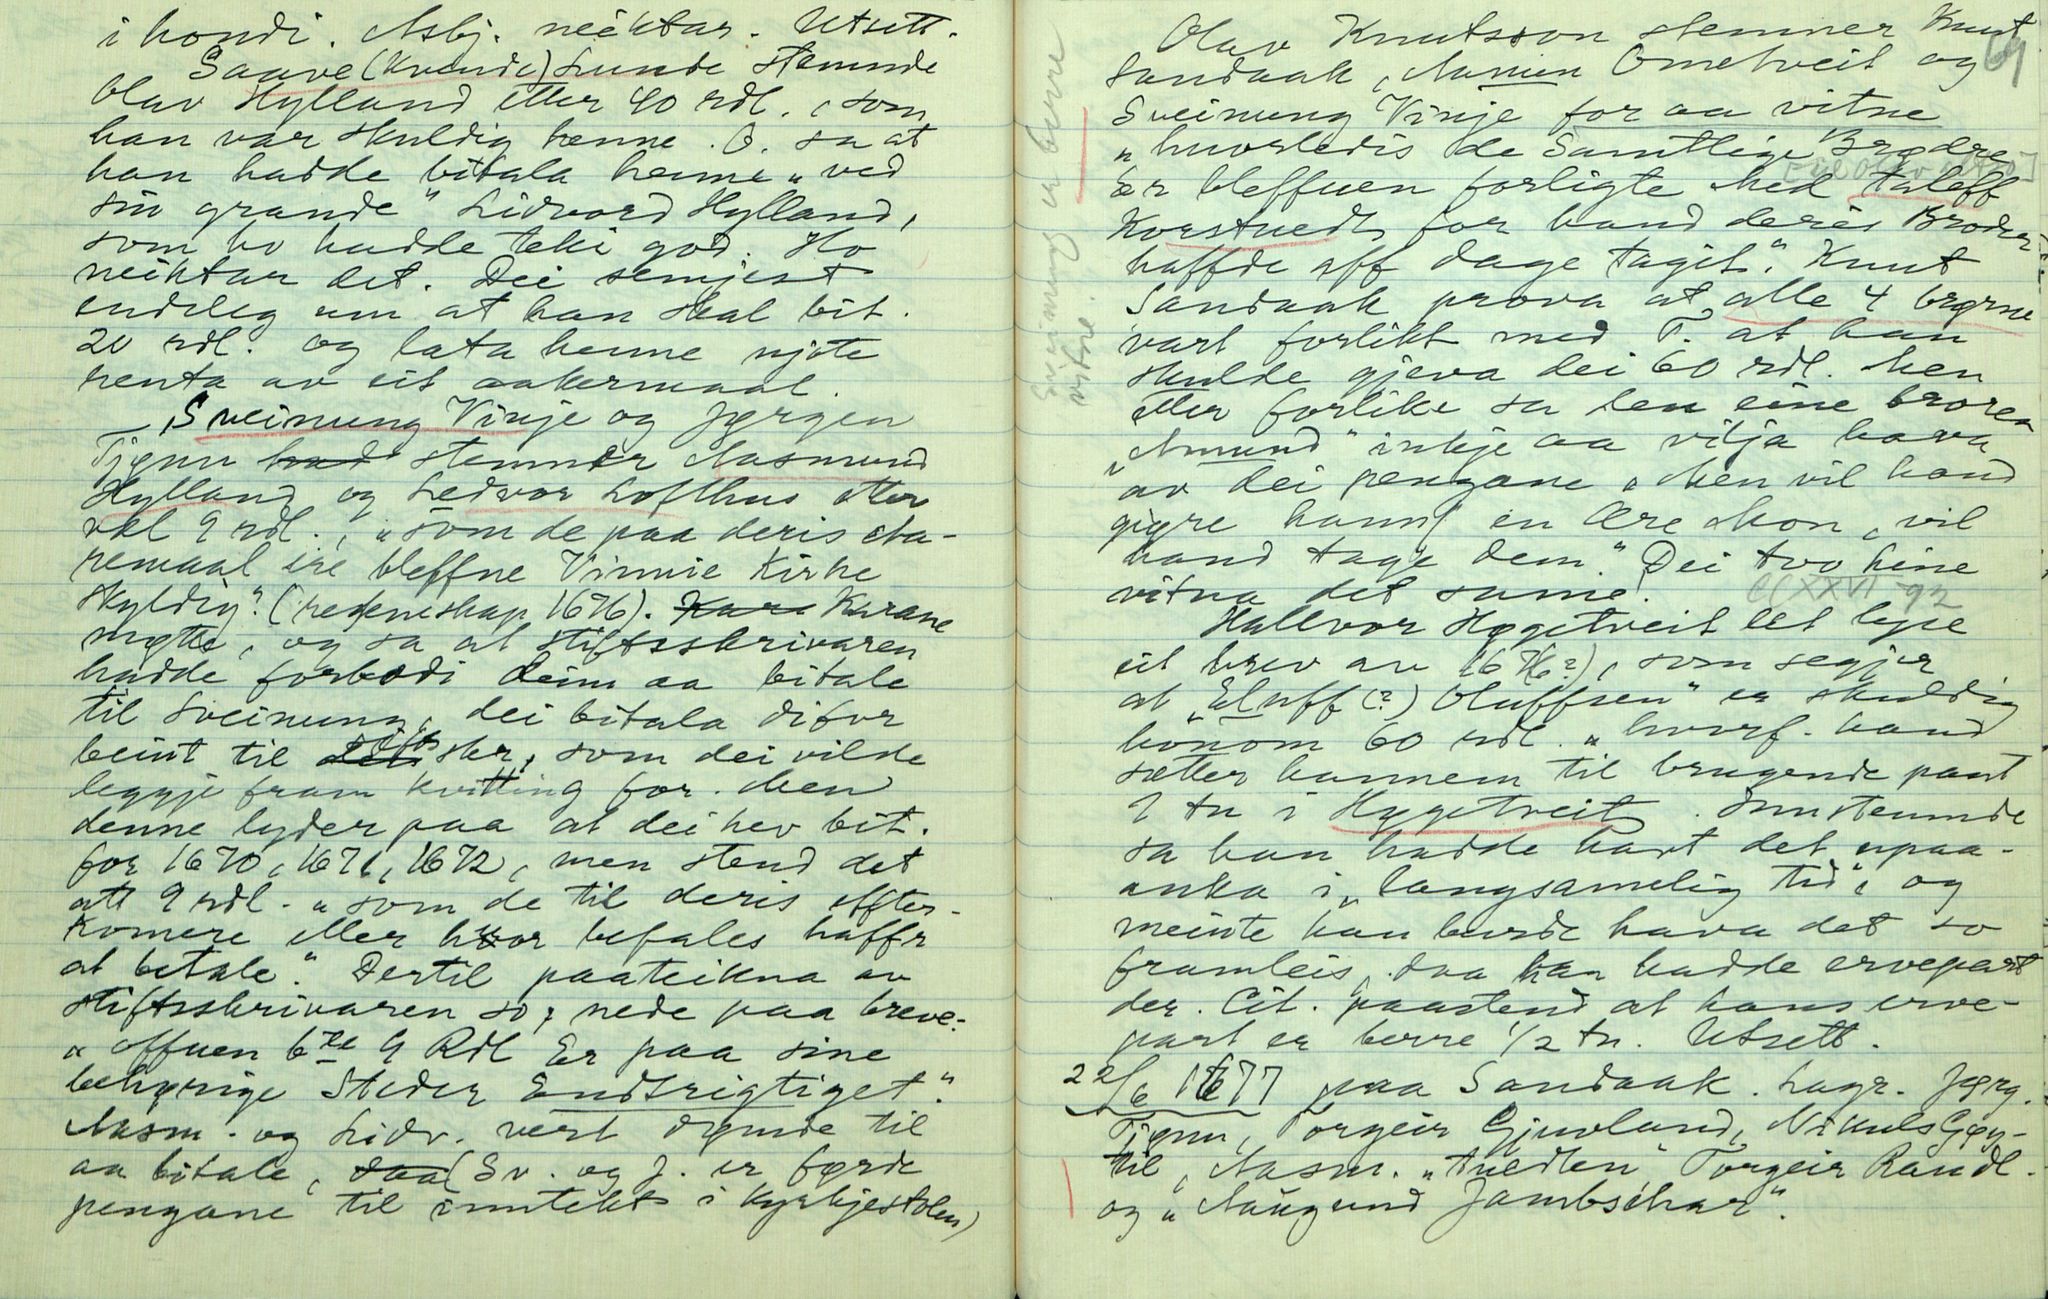 i hondi. Asbj. neiktar. Utsett.
Saave (kvende) Lunde stemnde
Olav Hylland etter 40 rdl., som
han var skuldig henne. O. sa at
han hadde bitala henne „ved
sin grande" Lidvord Hylland,
som ho hadde teki god. Ho
neiktar det. Dei semjest
endeleg um at han skal bit.
20 rdl. og lata henne njote
renta av eit aakermaal.
Sveinung Vinje og Jørgen
Tjønn stemner Aasmund
Hylland og Ledvor Lofthus etter
vel 9 rdl., „som de paa deris Aa-
remaal ere bleffne Vinnie Kirke
skyldig". (redeneskap 1676). Karane
møtte, og sa at stiftsskrivaren
hadde forbodi deim aa bitale
til Sveinung, dei bitala difor
beint til stiftsskr., som dei vilde
leggje fram kvitting for. Men
denne lyder paa at dei hev bit.
for 1670, 1671, 1672, men stend det
att 9 rdl. „som de til deris effter-
komere eller hvor befales haffr
at betale". Dertil paateikna av
stiftsskrivaren so, nede paa breve:
„offuen bne 9 Rdl Er paa sine
behørige Steder Endtrigtiget".
Aasm. og Lidv. vert dømde til
aa bitale, daa (Sv. og J. er førde
pengane til inntekt i kyrkjestolen)
69
Olav Knutsson stemner Knut
Sandaak, Aamun Ometveit og
Sveinung Vinje for aa vitne
„huorledis de Samtlige Brødre
Er bleffuen forligte Med taleff
Korstuedt for hand deris Broder
haffde aff dage tagit". Knut
Sandaak prova at alle 4 brørne
vart forlikt med T. at han
skulde gjeva dei 60 rdl. Men
etter forlike sa den eine broren
„Amund" inkje aa vilja hava
av dei pengane „Men vil hand
giøre hans en Ære Mon, vil
hand tage dem". Dei tvo hine
vitna det same.
CCXXVI 92
Hallvor Høgetveit let lese
eit brev av 1676(?), som segjer
at „Eluff (?) Oluffsen" er skuldig
honom 60 rdl. „hvorf. hand
sætter hannem til brugende pant
2 tn i Høgetveit. Innstemnde
sa han hadde havt det upaa-
anka i „langsamelig tid", og
meinte han burde hava det so
framleis, daa han hadde ervepart
der. Cit. paastend at hans erve-
part er berre 1/2 tn. Utsett.
22/6 1677 paa Sandaak. Lagr. Jørg.
Tjønn, Torgeir Gjuvland, Nikuls Gøy-
til, Aasm. „tuedten" Torgeir Randl.
og „Aaugund Jambsihar".
Sveinung er berre
vitne.